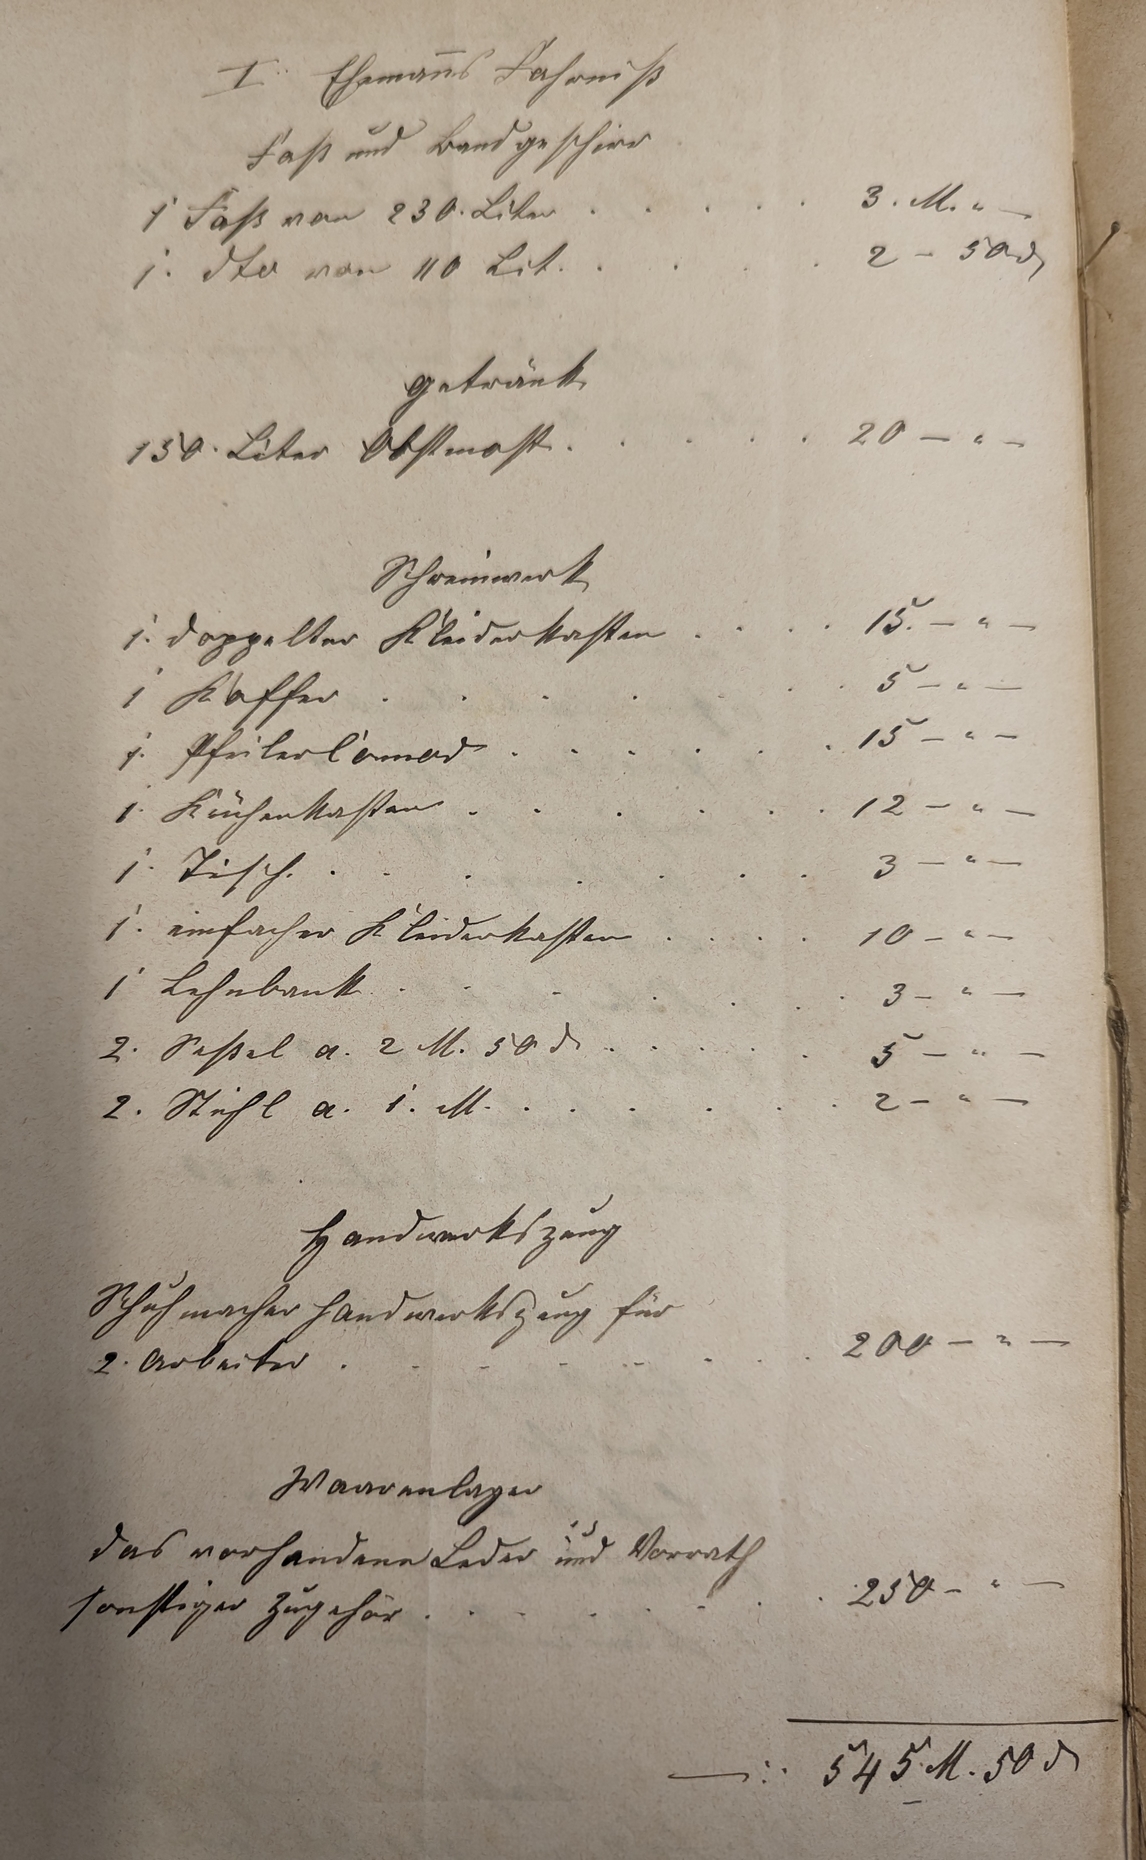 I. Ehemanns Fahrniß
Faß und Bandgeschirr
1 Faß von 230. Liter . . . . . 3. M. " —
1. dto von 110 Lit. . . . 2 — 50 ₰
Getränk
150. Liter Obstmost . . . . . 20 — " —
Schreinwerk
1. doppelter Kleiderkasten . . . . 15. — " —
1 Koffer . . . . . . 5 — " —
1. Pfeilercomod . . . . . . 15 — " —
1. Küchenkasten . . . . . 12 — " —
1. Tisch . . . . . . . 3 — " —
1. einfacher Kleiderkasten . . . . 10 — " —
1 Lehnbank . . . . . . 3 — " —
2. Seßel a. 2 M. 50 ₰ . . . . . 5 — " —
2. Stuhl a. 1. M. . . . . . . 2 — " —
Handwerkszeug
Schuhmacher Handwerkszeug für
2. Arbeiter . . . . . . . 200 — " —
Waarenlager
das vorhandene Leder und Vorrath
sonstiger Zugehör . . . . . . . 250 — " —
—: 545 M. 50 ₰